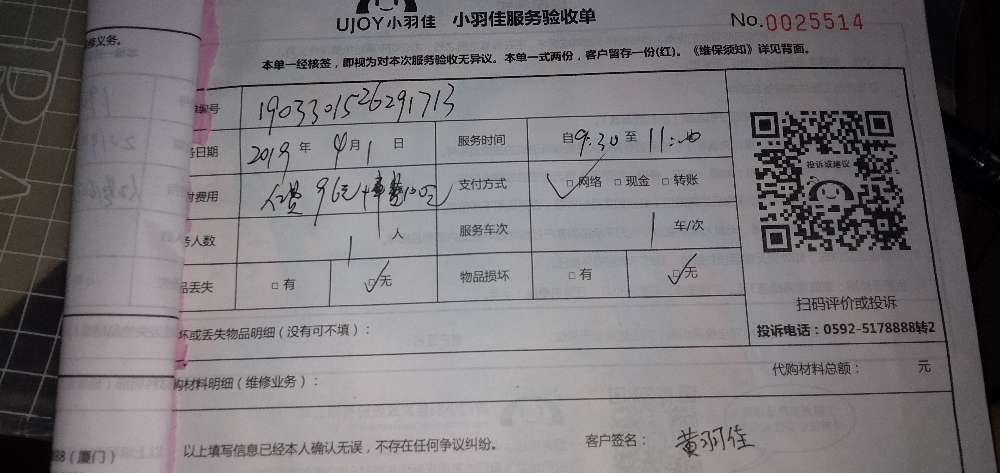 UJOY小羽佳 小羽佳服务验收单 No.0025514
修义务。
本单一经核签，即视为对本次服务验收无异议。本单一式两份，客户留存一份(红)。《维保须知》详见背面。
编号 1903301526291713
务日期 2019 年 4 月 1 日 服务时间 自 9:30 至 11:
付费用 人费 96元+车费100元 支付方式 □网络 □现金 □转账
务人数 1 人 服务车次 1 车/次
品丢失 □有 □无 物品损坏 □有 □无
投诉或建议
扫码评价或投诉
投诉电话：0592-5178888转2
坏或丢失物品明细（没有可不填）：
购材料明细（维修业务）： 代购材料总额： 元
以上填写信息已经本人确认无误，不存在任何争议纠纷。 客户签名： 黄羽佳
88（厦门）